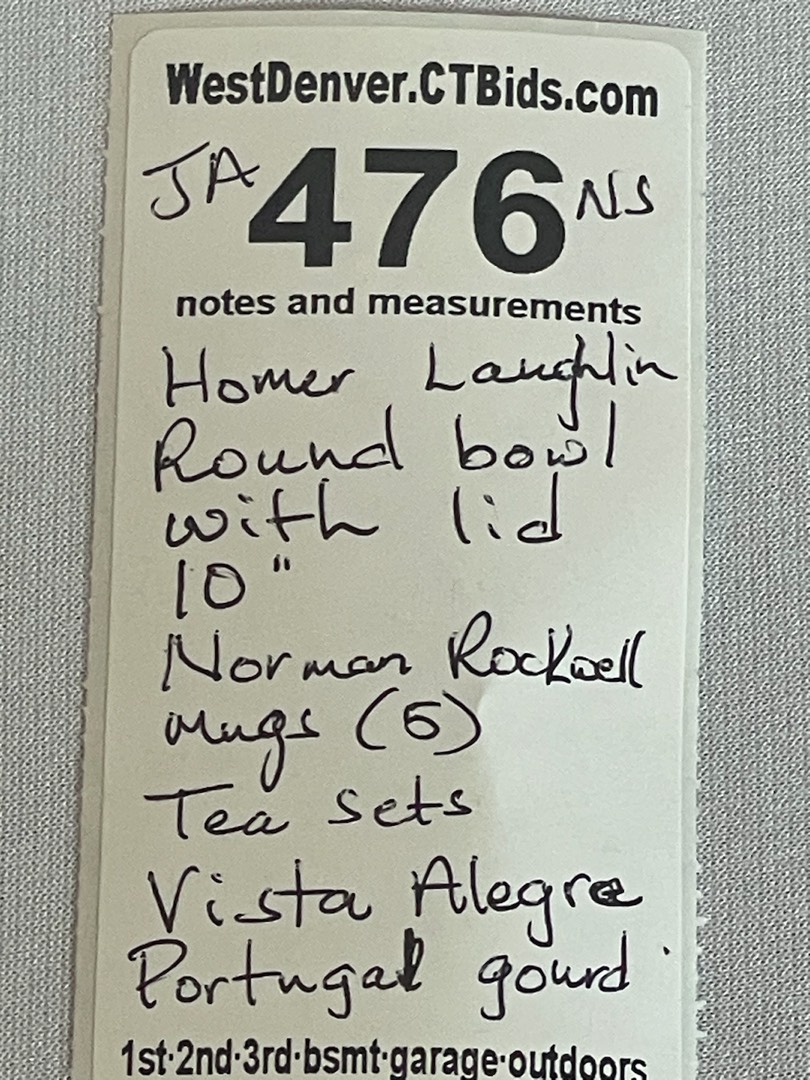 WestDenver.CTBids.com
JA 476 NS
notes and measurements
Homer Laughlin
Round bowl
with lid
10"
Norman Rockwell
mugs (5)
Tea sets
Vista Alegre
Portugal gourd
1st·2nd·3rd·bsmt·garage·outdoors